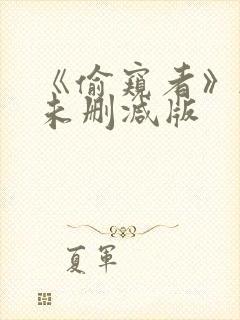 《偷窥者》
未删减版
夏军